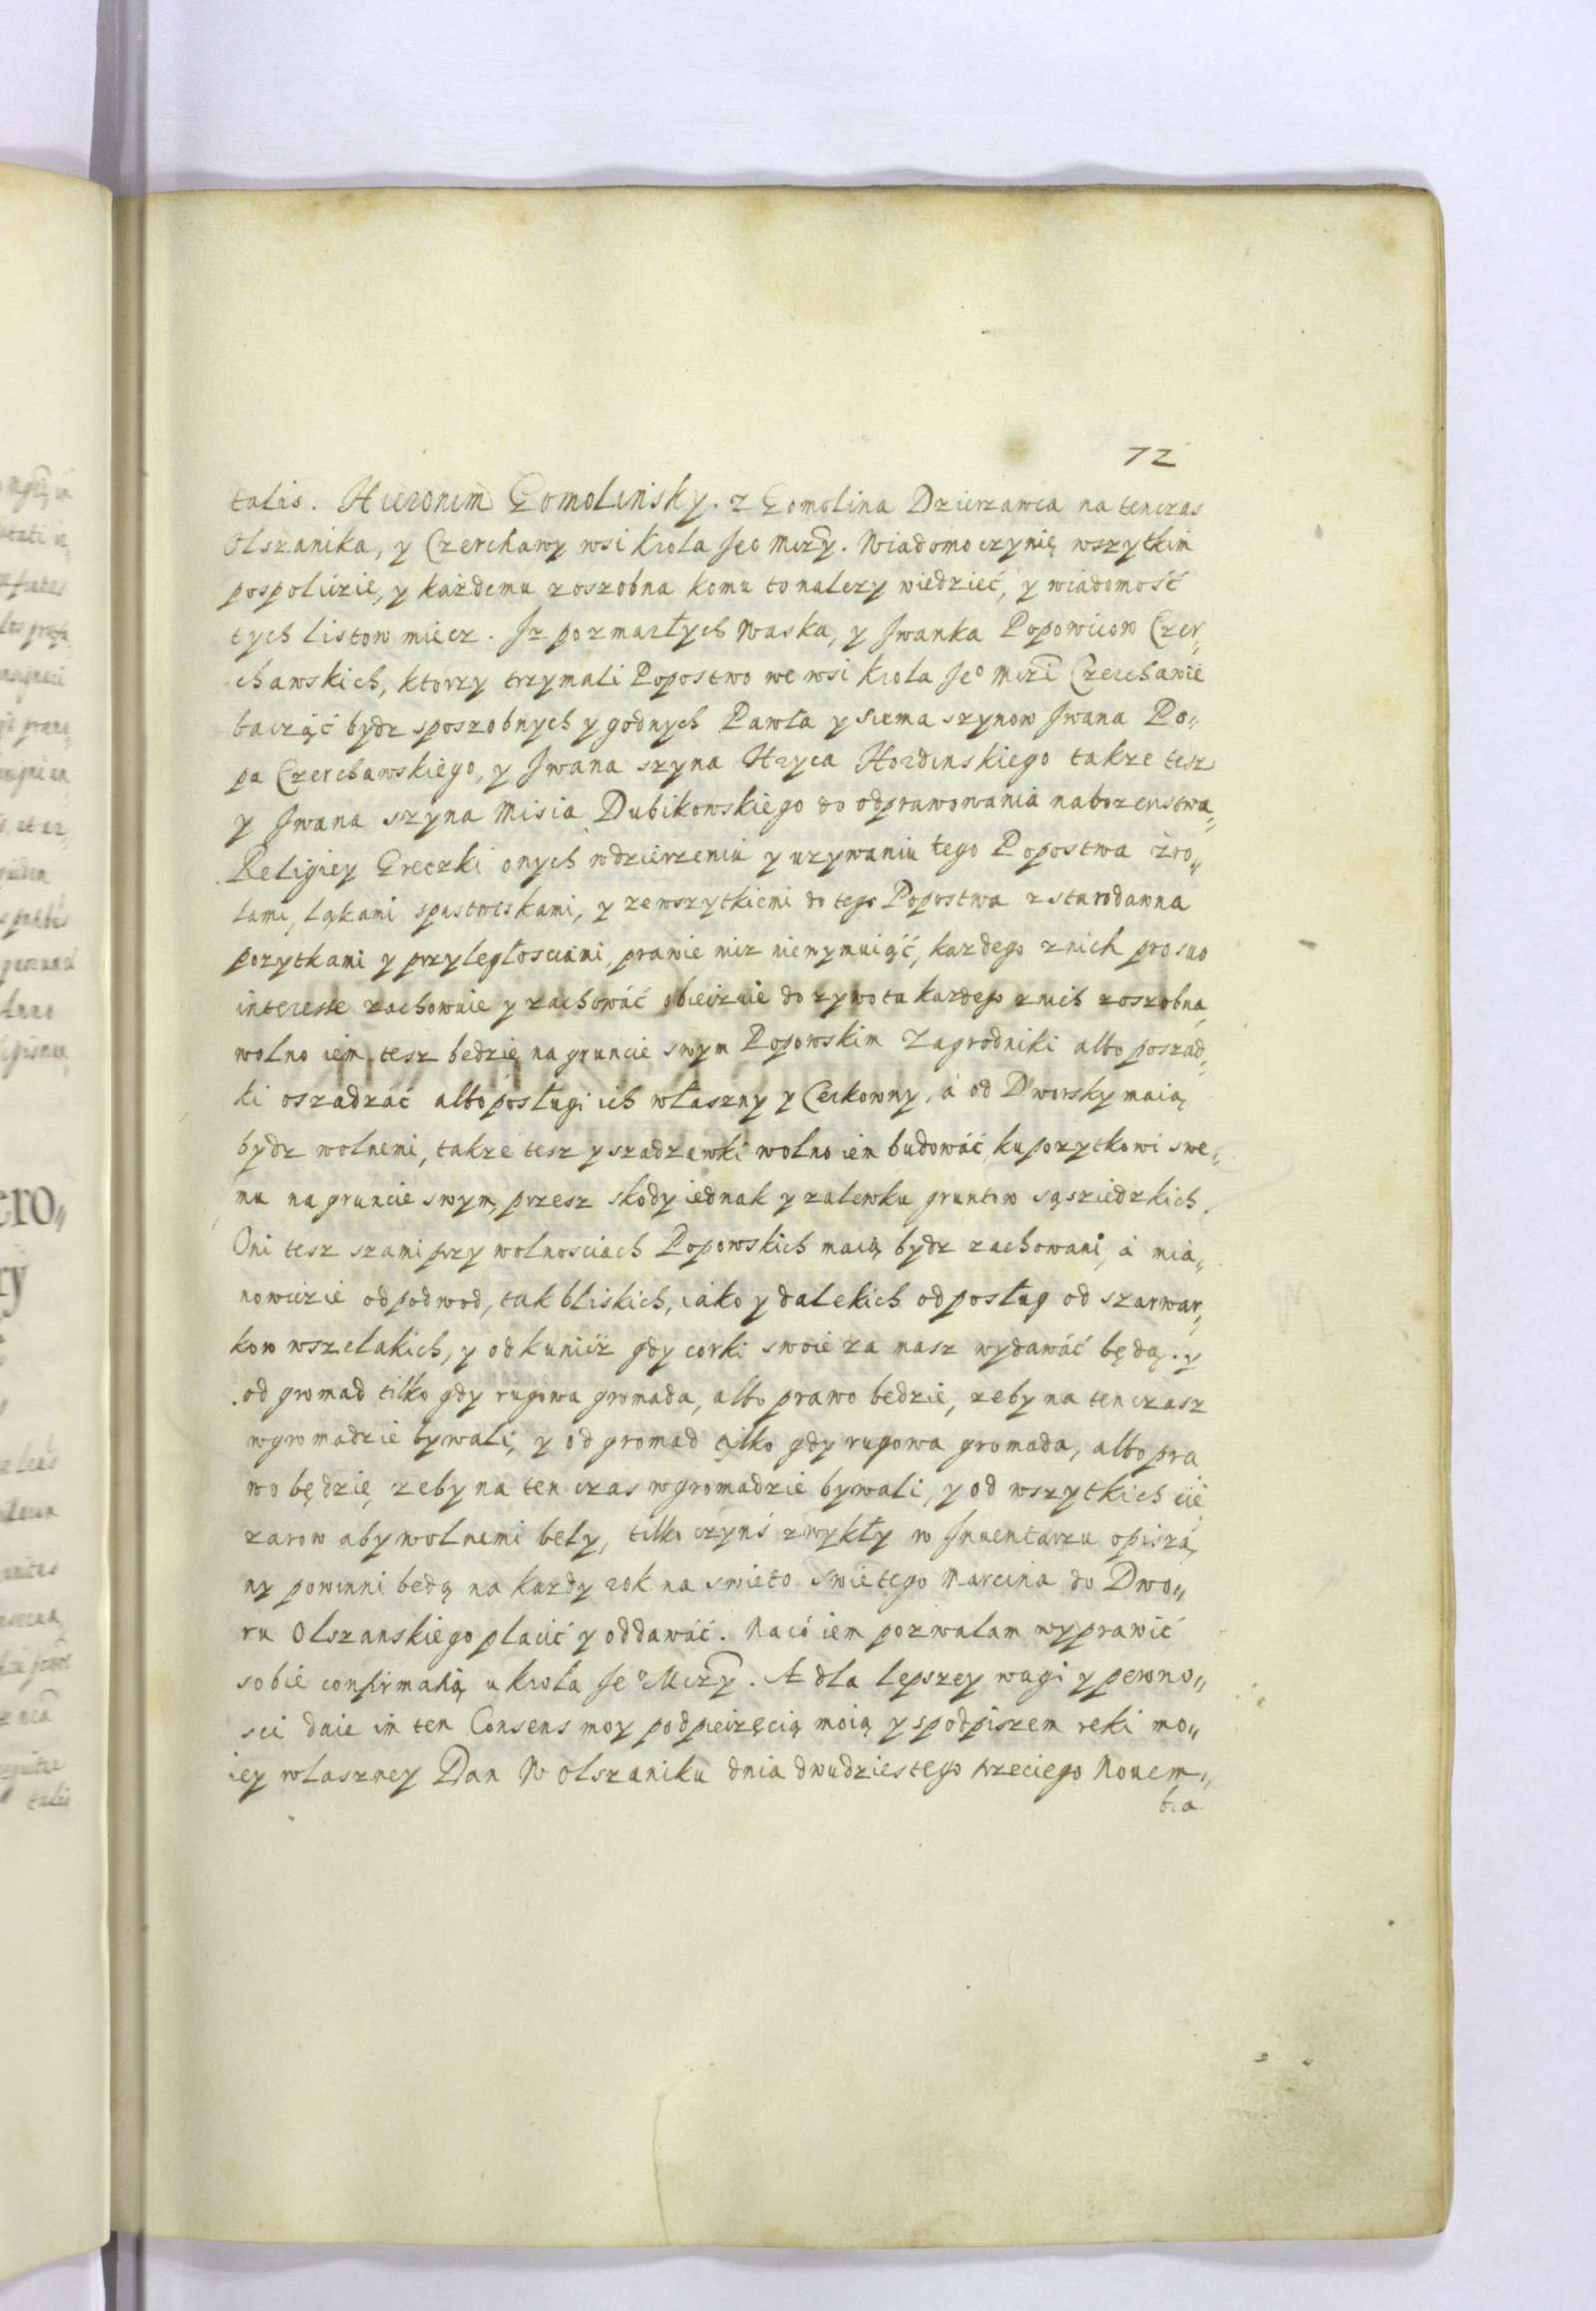 72
talis. Hieronim Gomolinsky. z Gomolina Dzierzawca na tenczas
Olszanika, y Czerchawy wsi Krola Jeo Mczy. Wiadomo czynię wszytkim
pospolicie, y każdemu zoszobna komu to nalezy wiedzieć, y wiadomość
tych listow miecz. Jz po zmarłych Waska, y Jwanka Popowicow Czer„
chawskich, ktorzy trzymali Popostwo we wsi Krola Jeo Mczi Czerchawie
bacząć bydz sposzobnych y godnych Pawła y Siema szynow Jwana Po„
pa Czerchawskiego, y Jwana szyna Hryca Hordinskiego takze tesz
y Jwana szyna Misia Dubikowskiego do odprawowania nabozenstwa„
Religiey Greczki onych w dzierzeniu y uzywaniu tego Popostwa zro„
lami, łąkami spastwiskami, y ze wszytkiemi do tego Popostwa z starodawna
pozytkami y przyległosciami, prawie niz niewymuiąć, kazdego z nich pro suo
interesse zachowuie y zachować obieczuie do zywota kazdego z nich zoszobna,
wolno iem tesz bedzie na gruncie swym Popowskim Zagrodniki albo poszad„
ki oszadzáć albo posługi ich własny y Cerkowny, á od Dworsky maią
bydz wolnemi, takze tesz y szadzawki wolno iem budować ku pozytkowi swe„
mu na gruncie swym, przesz skody iednak y zalewku gruntow sąsziedzkich.
Oni tesz szami przy wolnosciach Popowskich maią bydz zachowani, á mia„
nowicie od podwod, tak bliskich, iako y dalekich od posług od szarwar„
kow wszelakich, y od kunicz gdy corki swoie za masz wydawáć będą. y
od gromad tilko gdy rugowa gromada, albo prawo bedzie, zeby na ten czasz
w gromadzie bywali, y od gromad tylko gdy rugowa gromada, albo pra
wo będzie, zeby na ten czas w gromadzie bywali, y od wszytkich cię
zarow aby wolnemi bely, tilko czynś zwykły w Jnuentarzu opiszá„
ny powinni bedą na kazdy rok na swieto swietego Marcina do Dwo„
ru Olszanskiego placić y oddawáć. Na có iem pozwalam wyprawić
sobie confirmatią u Krola Jeo Mczy. A dla lepszey wagi y pewno„
sci daie im ten Consens moy pod pieczęcią moią y s podpiszem reki mo„
iey wlaszney Dan W Olszaniku dnia dwudziestego trzeciego Nouem„
bra